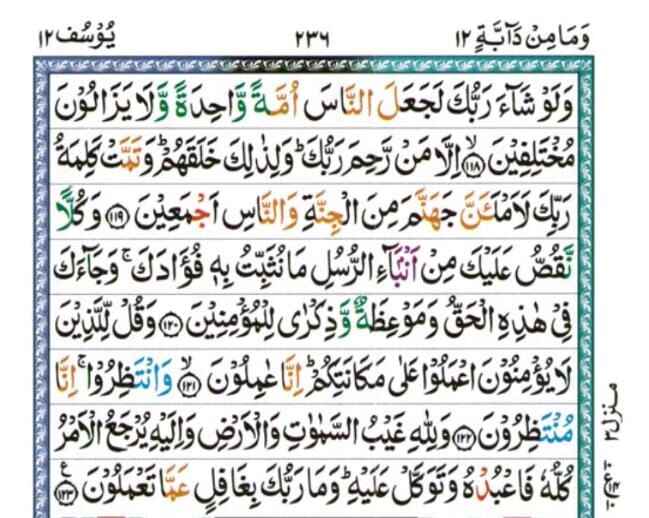 وَمَا مِنْ دَآبَّةٍ ١٢
٢٣٦
يُوْسُف ١٢
وَلَوْ شَآءَ رَبُّكَ لَجَعَلَ النَّاسَ اُمَّةً وَّاحِدَةً وَّلَا يَزَالُوْنَ
مُخْتَلِفِيْنَ ﴿١١٨﴾ۙ اِلَّا مَنْ رَّحِمَ رَبُّكَ ؕ وَلِذٰلِكَ خَلَقَهُمْ ؕ وَتَمَّتْ كَلِمَةُ
رَبِّكَ لَاَمْلَـَٔنَّ جَهَنَّمَ مِنَ الْجِنَّةِ وَالنَّاسِ اَجْمَعِيْنَ ﴿١١٩﴾ وَكُلًّا
نَّقُصُّ عَلَيْكَ مِنْ اَنْۢبَآءِ الرُّسُلِ مَا نُثَبِّتُ بِهٖ فُؤَادَكَ ۚ وَجَآءَكَ
فِيْ هٰذِهِ الْحَقُّ وَمَوْعِظَةٌ وَّذِكْرٰى لِلْمُؤْمِنِيْنَ ﴿١٢٠﴾ وَقُلْ لِّلَّذِيْنَ
لَا يُؤْمِنُوْنَ اعْمَلُوْا عَلٰى مَكَانَتِكُمْ ؕ اِنَّا عٰمِلُوْنَ ﴿١٢١﴾ۙ وَانْتَظِرُوْا ۚ اِنَّا
مُنْتَظِرُوْنَ ﴿١٢٢﴾ وَلِلّٰهِ غَيْبُ السَّمٰوٰتِ وَالْاَرْضِ وَاِلَيْهِ يُرْجَعُ الْاَمْرُ
كُلُّهٗ فَاعْبُدْهُ وَتَوَكَّلْ عَلَيْهِ ؕ وَمَا رَبُّكَ بِغَافِلٍ عَمَّا تَعْمَلُوْنَ ﴿١٢٣﴾ ع
منزل ٣